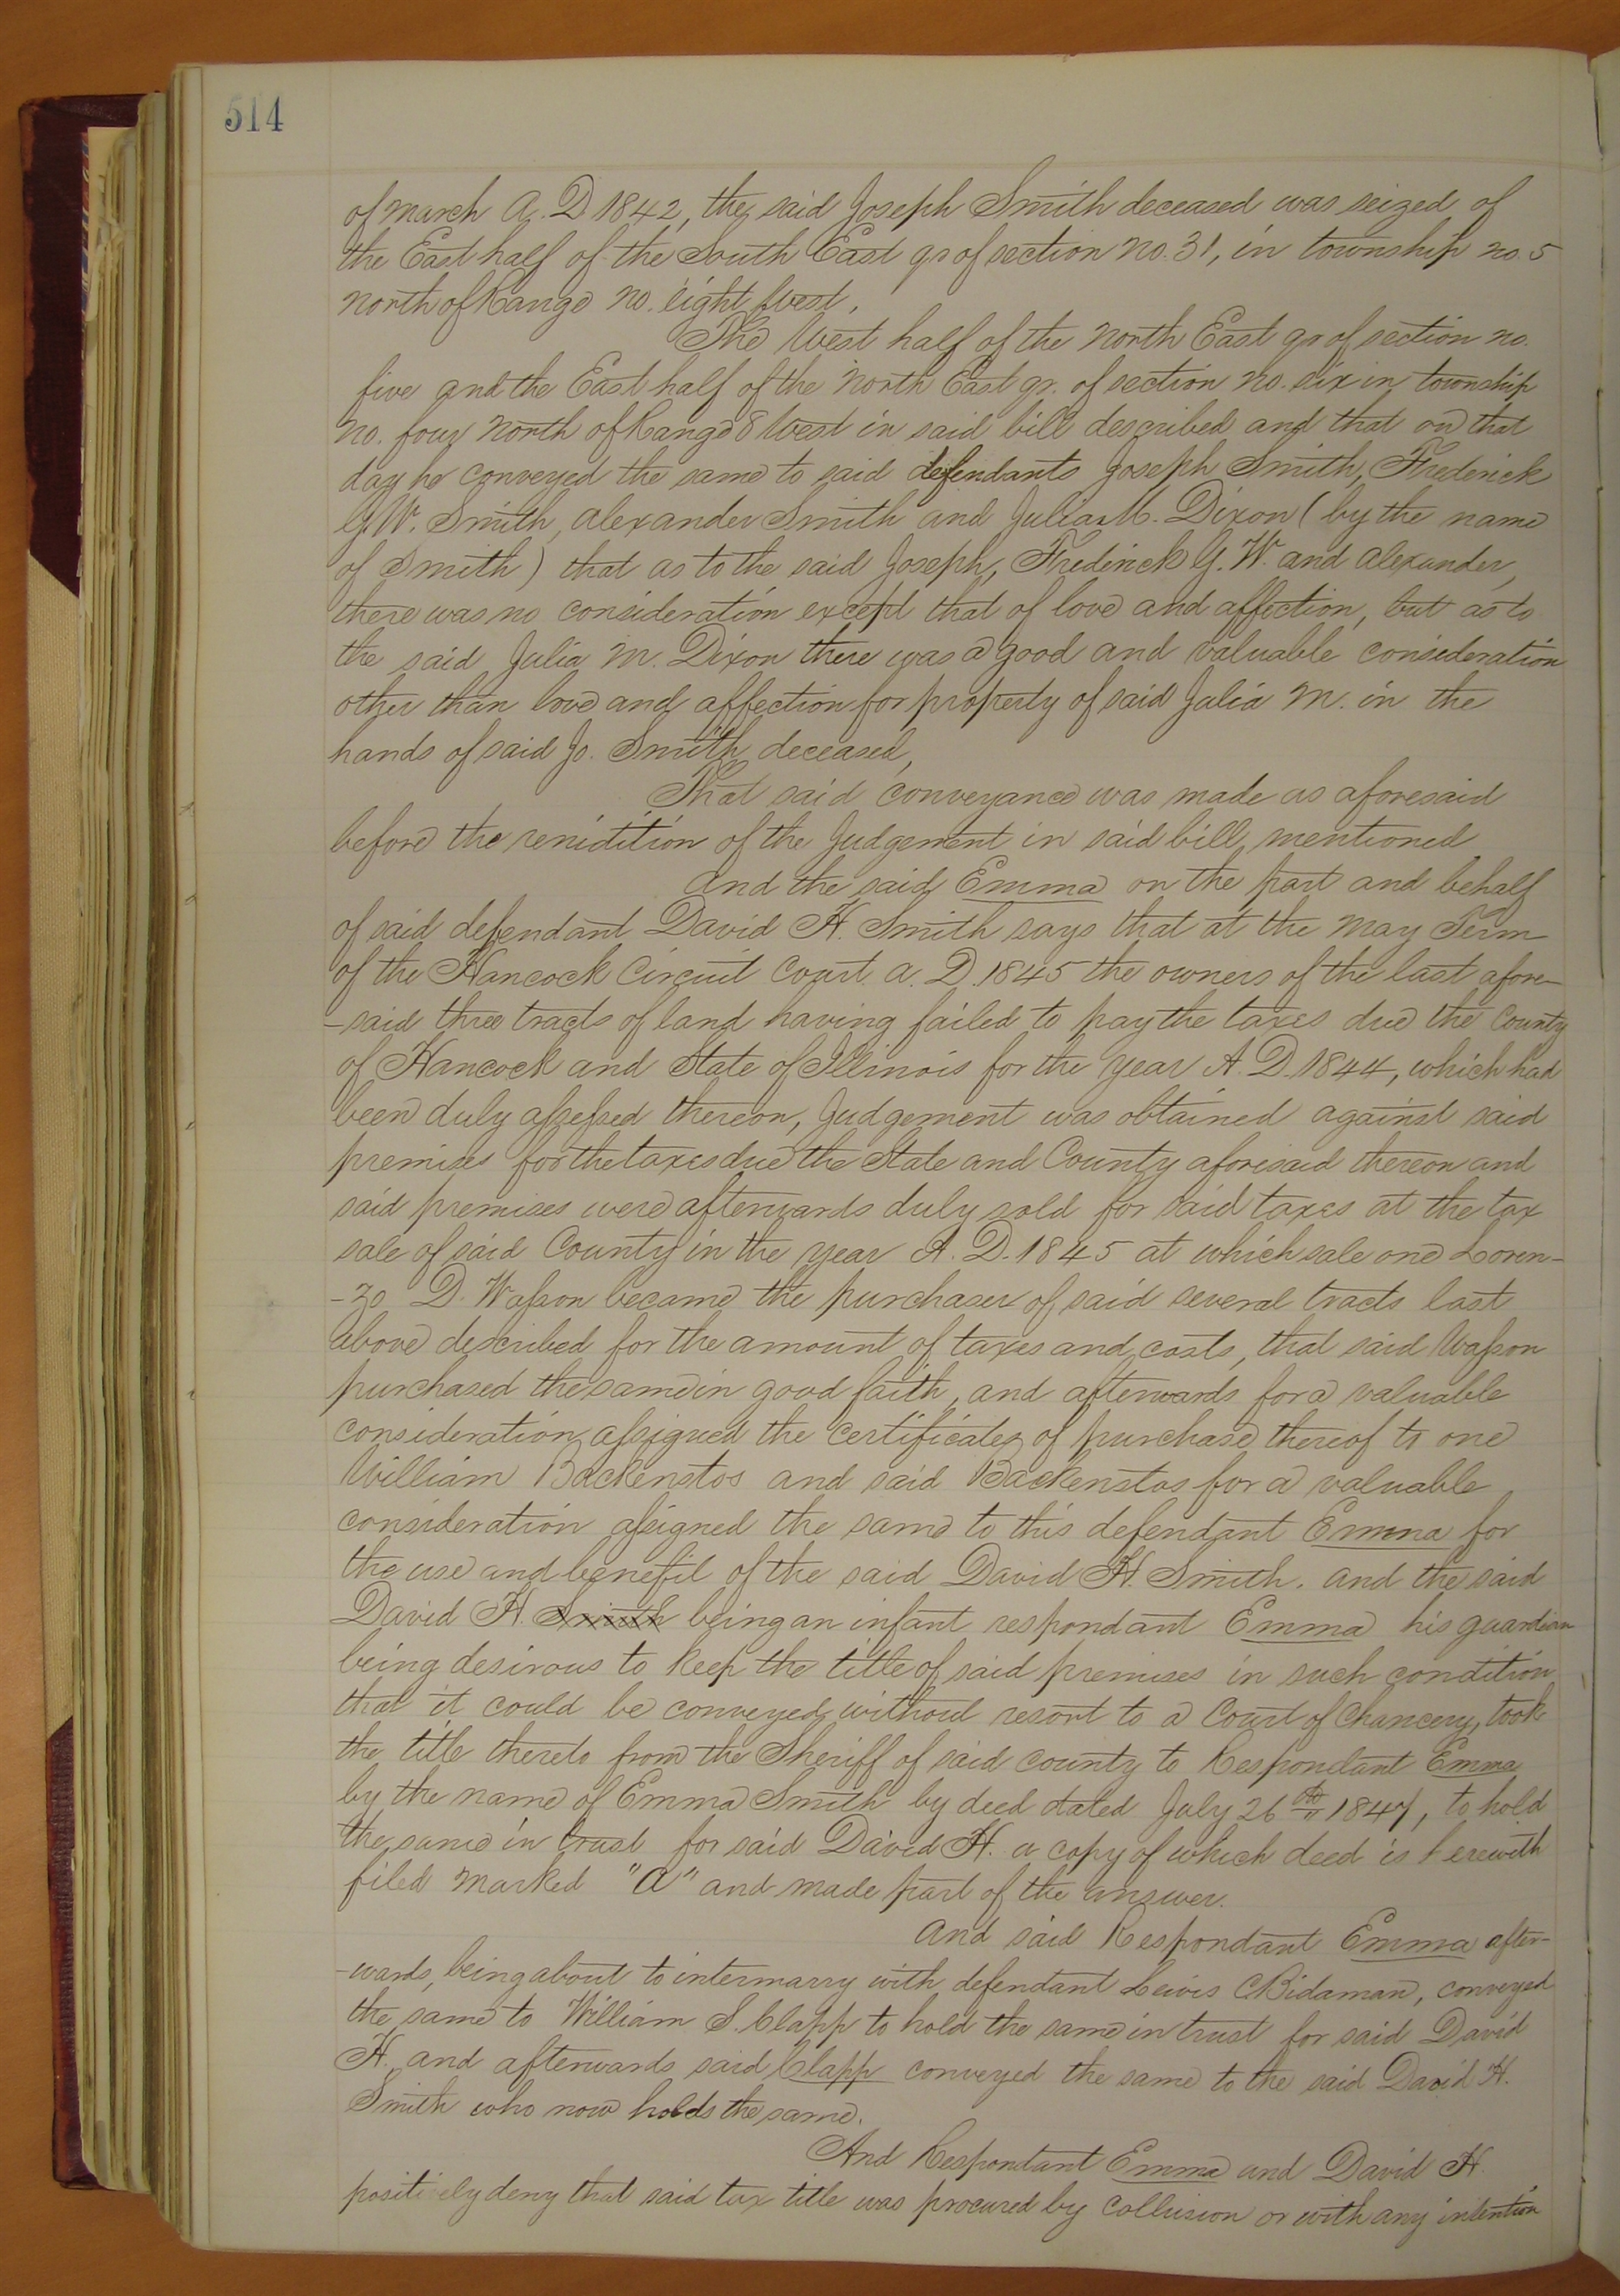 514
of march A. D. 1842, the said Joseph Smith deceased was seized of
the East half of the South East qr of section no. 31, in township no. 5
north of Range no. eight West.
The West half of the North East qr of section no.
five and the East half of the North East qr. of section no. six in township
no. four North of Range 8 West in said bill described and that on that
day he conveyed the same to said defendants Joseph Smith, Frederick
G. W. Smith, alexander Smith and Julia M. Dixon (by the name
of Smith) that as to the said Joseph, Frederick G. W. and alexander,
there was no consideration except that of love and affection, but as to
the said Julia M. Dixon there was a good and valuable consideration
other than love and affection for property of said Julia M. in the
hands of said Jo. Smith deceased,
That said conveyance was made as aforesaid
before the renidition of the Judgement in said bill, mentioned
and the said Emma on the part and behalf
of said defendant David H. Smith says that at the May Term
of the Hancock Circuit Court. a. D. 1845 the owners of the last afore-
-said three tracts of land having failed to pay the taxes due the County
of Hancock and State of Illinois for the year A. D. 1844, which had
been duly assessed thereon, Judgement was obtained against said
premises for the taxes due the State and County aforesaid thereon and
said premises were afterwards duly sold for said taxes at the tax
sale of said County in the year A. D. 1845 at which sale one Loren-
-zo D. Wasson became the purchaser of said several tracts last
above described for the amount of taxes and costs, that said Wasson
purchased the same in good faith, and afterwards for a valuable
consideration assigned the certificates of purchase thereof to one
William Backenstos and said Backenstos for a valuable
consideration assigned the same to this defendant Emma for
the use and benefit of the said David H. Smith. and the said
David H. Smith being an infant respondant Emma his guardian
being desirous to keep the title of said premises in such condition
that it could be conveyed without resort to a Court of Chancery, took
the title thereto from the Sheriff of said county to Respondant Emma
by the name of Emma Smith by deed dated July 26th 1847, to hold
the same in trust for said David H. a copy of which deed is herewith
filed marked "A" and made part of the answer.
and said Respondant Emma after-
-wards, being about to intermarry with defendant Lewis C Bidaman, conveyed
the same to William S. Clapp to hold the same in trust for said David
H. and afterwards said Clapp conveyed the same to the said David H.
Smith who now holds the same.
And Respondant Emma and David H.
positively deny that said tax title was procured by collusion or with any intention